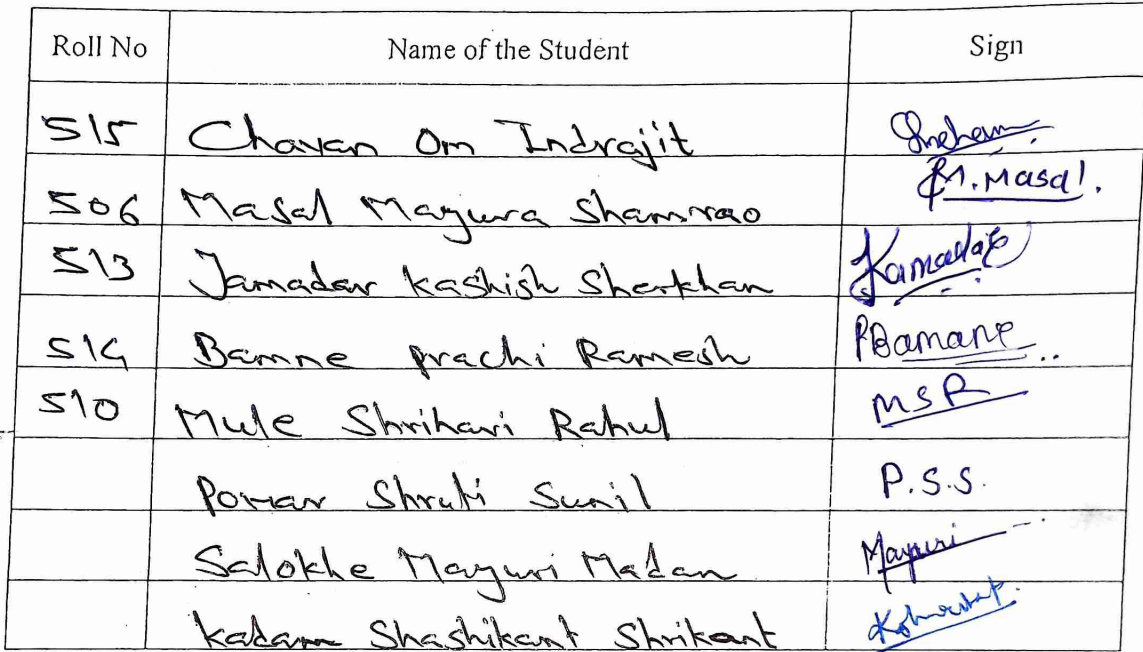 Roll No Name of the Student Sign
515 Chavan Om Indrajit
506 Masal Mayura Shamrao M.Masal.
513 Jamadar Kashish Sherkhan Jamadar
514 Bamne prachi Ramesh PBamane
510 Mule Shrihari Rahul MSR
Powar Shruti Sunil P.S.S.
Salokhe Mayuri Madan Mayuri
Kadam Shashikant Shrikant